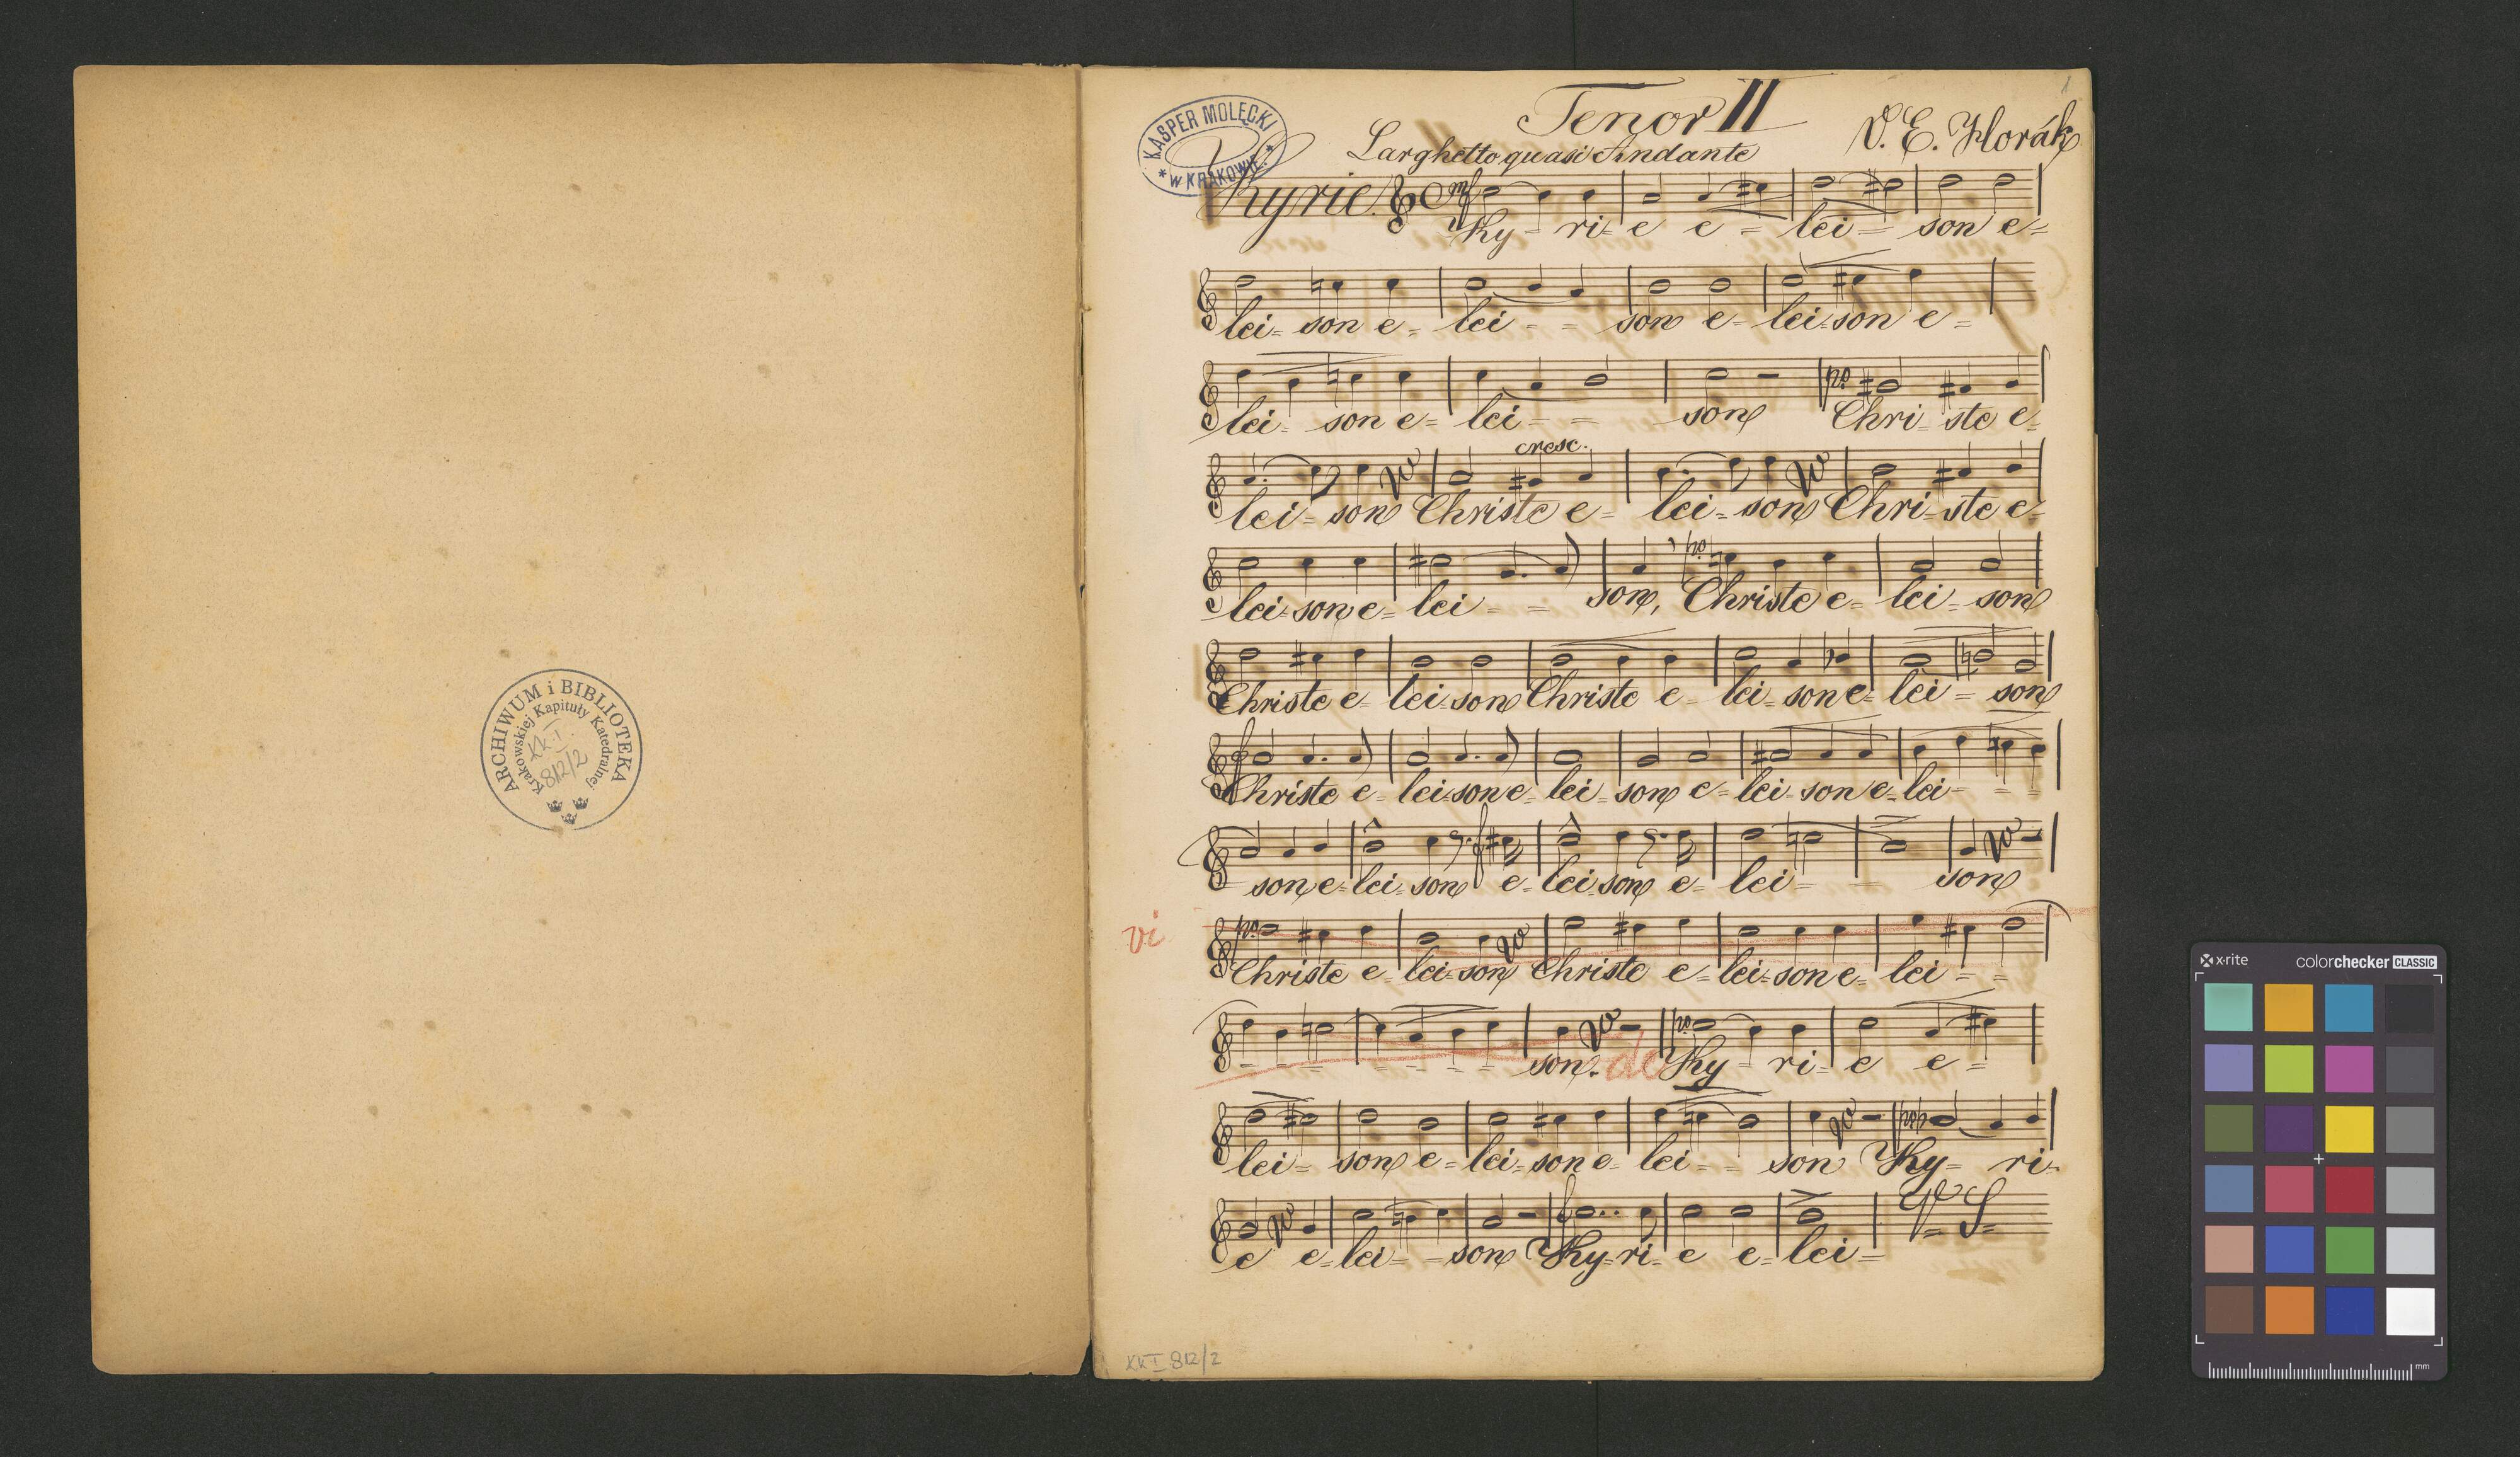 ARCHIWUM i BIBLIOTEKA
Krakowskiej Kapituły Katedralnej
KK I
812/2
1
KASPER MOLĘCKI
* W KRAKOWIE. *
Tenor II
V. E. Horák
Larghetto quasi Andante
Kyrie.
mf
Ky - ri - e e - lei - son e -
lei - son e - lei - - son e - lei - son e -
lei - son e - lei - - son Chri - ste e -
po
cresc.
lei - son Christe e - lei - son Chri - ste e -
po
lei - son e - lei - - son, Christe e - lei - son
Christe e - lei - son Christe e - lei - son e - lei - son
f
Christe e - lei - son e - lei - son e - lei - son e - lei - - -
f
son e - lei - son e - lei son e - lei - - son
vi
po
Christe e - lei - son Christe e - lei - son e - lei - -
po
- - - - - - - son. de Ky - ri - e e -
lei - son e - lei - son e - lei - - son Ky - ri -
f
e e - lei - - son Ky - ri - e e - lei -
V = S =
KK I 812/2
x-rite
colorchecker CLASSIC
mm